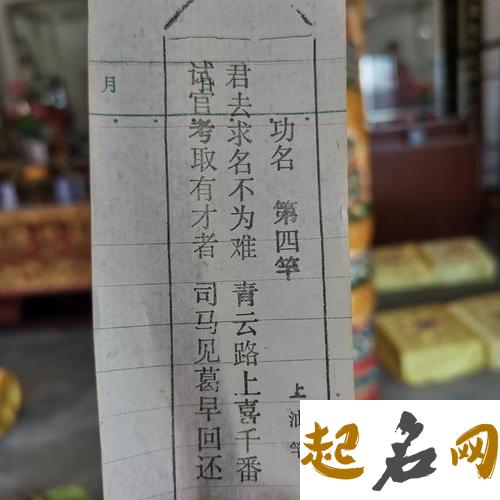 功名 第四竿
上油竿
君去求名不为难 青云路上喜千番
试官考取有才者 司马见葛早回还
月 日
起名网